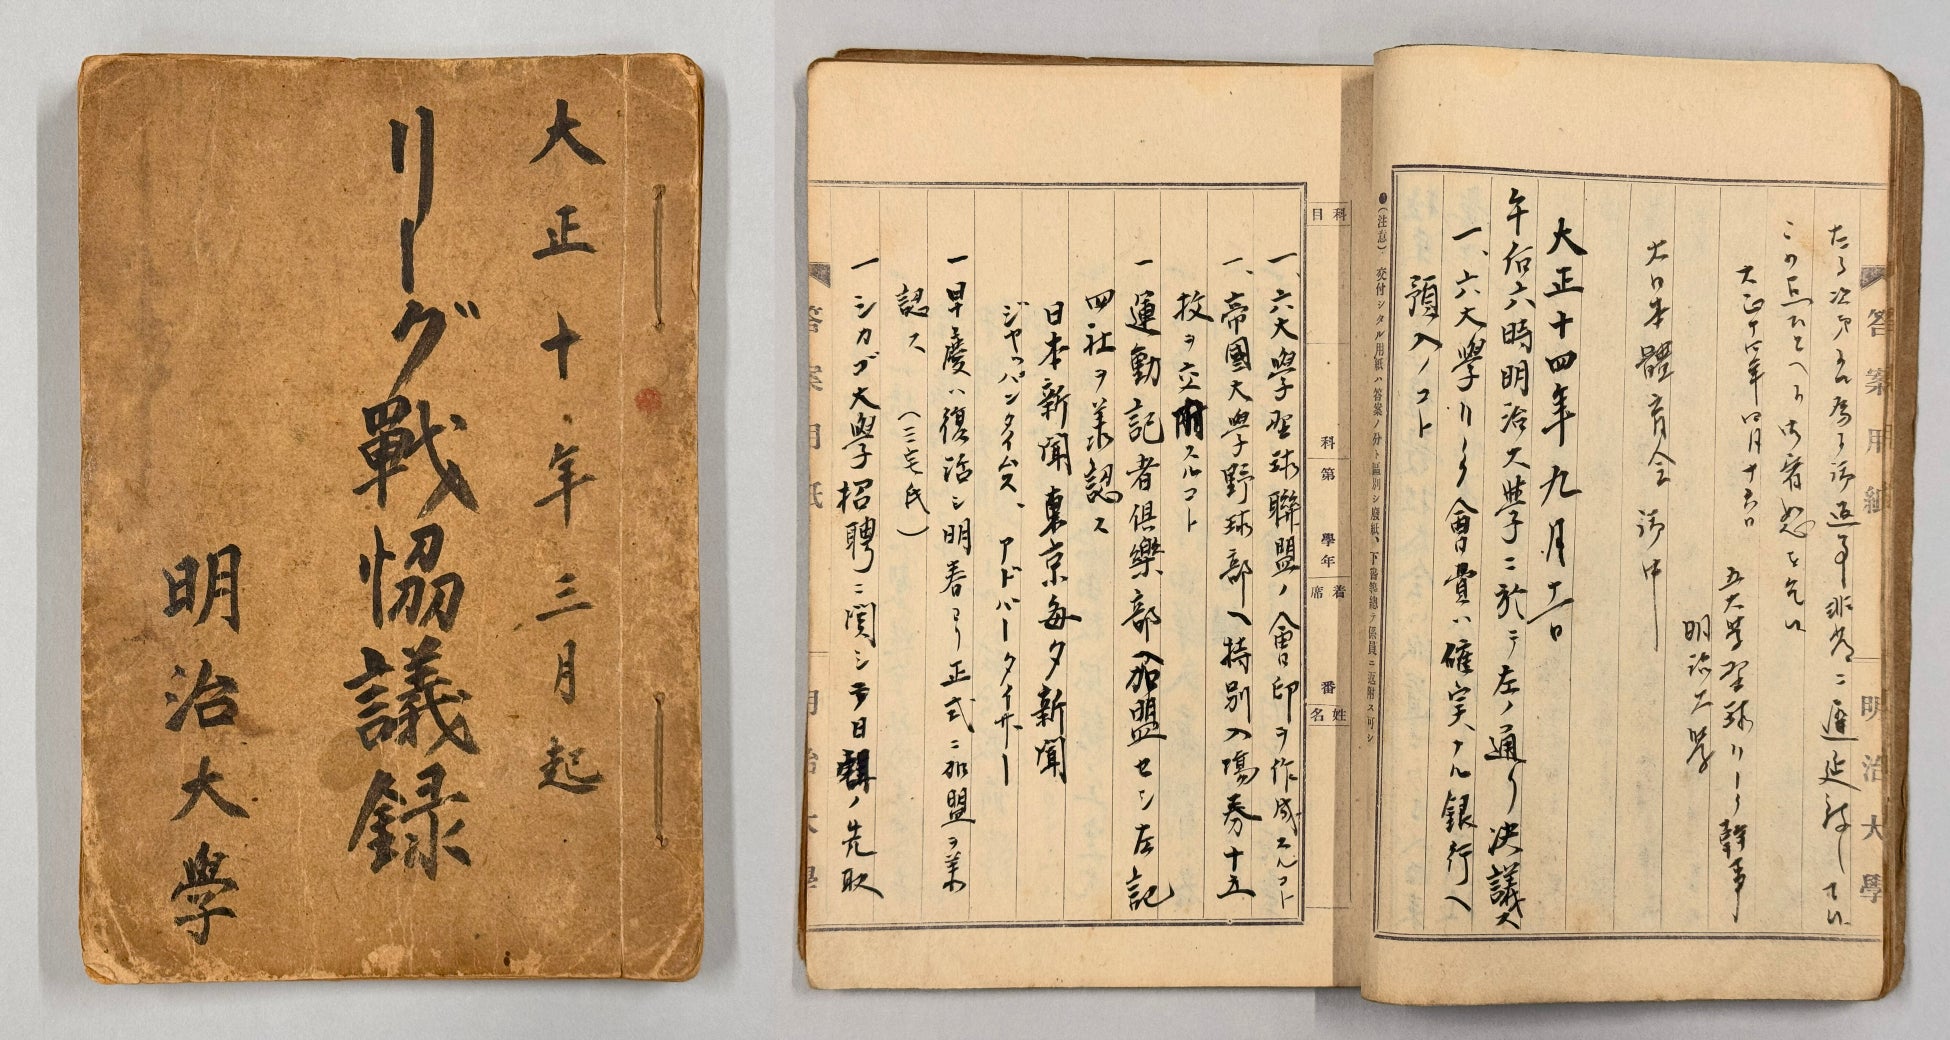 大正十年三月起
リーグ戰協議録
明治大學
たる次第 御返事非常ニ遅延致し
この点
大正十四年四月十六日
五大学野球リーグ幹事
明治大學
大日本體育会 御中
大正十四年九月十一日
午后六時明治大学ニ於テ左ノ通リ決議ス
一、六大學リーグ會費ハ確実ナル銀行へ
預入ノコト
●(注意)交付シタル用紙ハ答案ノ分ト區別シ廢紙、下書等總テ係員ニ返附ス可シ
科目
科第 學年
着席 番
姓名
一、六大學野球聯盟ノ會印ヲ作成スルコト
一、帝國大學野球部へ特別入場券十五
枚ヲ交附スルコト
一 運動記者俱樂部へ加盟セシ左記
四社ヲ承認ス
日本新聞 東京每夕新聞
ジャッパンタイムス、アドバータイザー
一 早慶ハ復活シ明春ヨリ正式ニ加盟ヲ承
認ス (三宅氏)
一 シカゴ大學招聘ニ関シテ日割ノ先取
答案用紙
明治大學